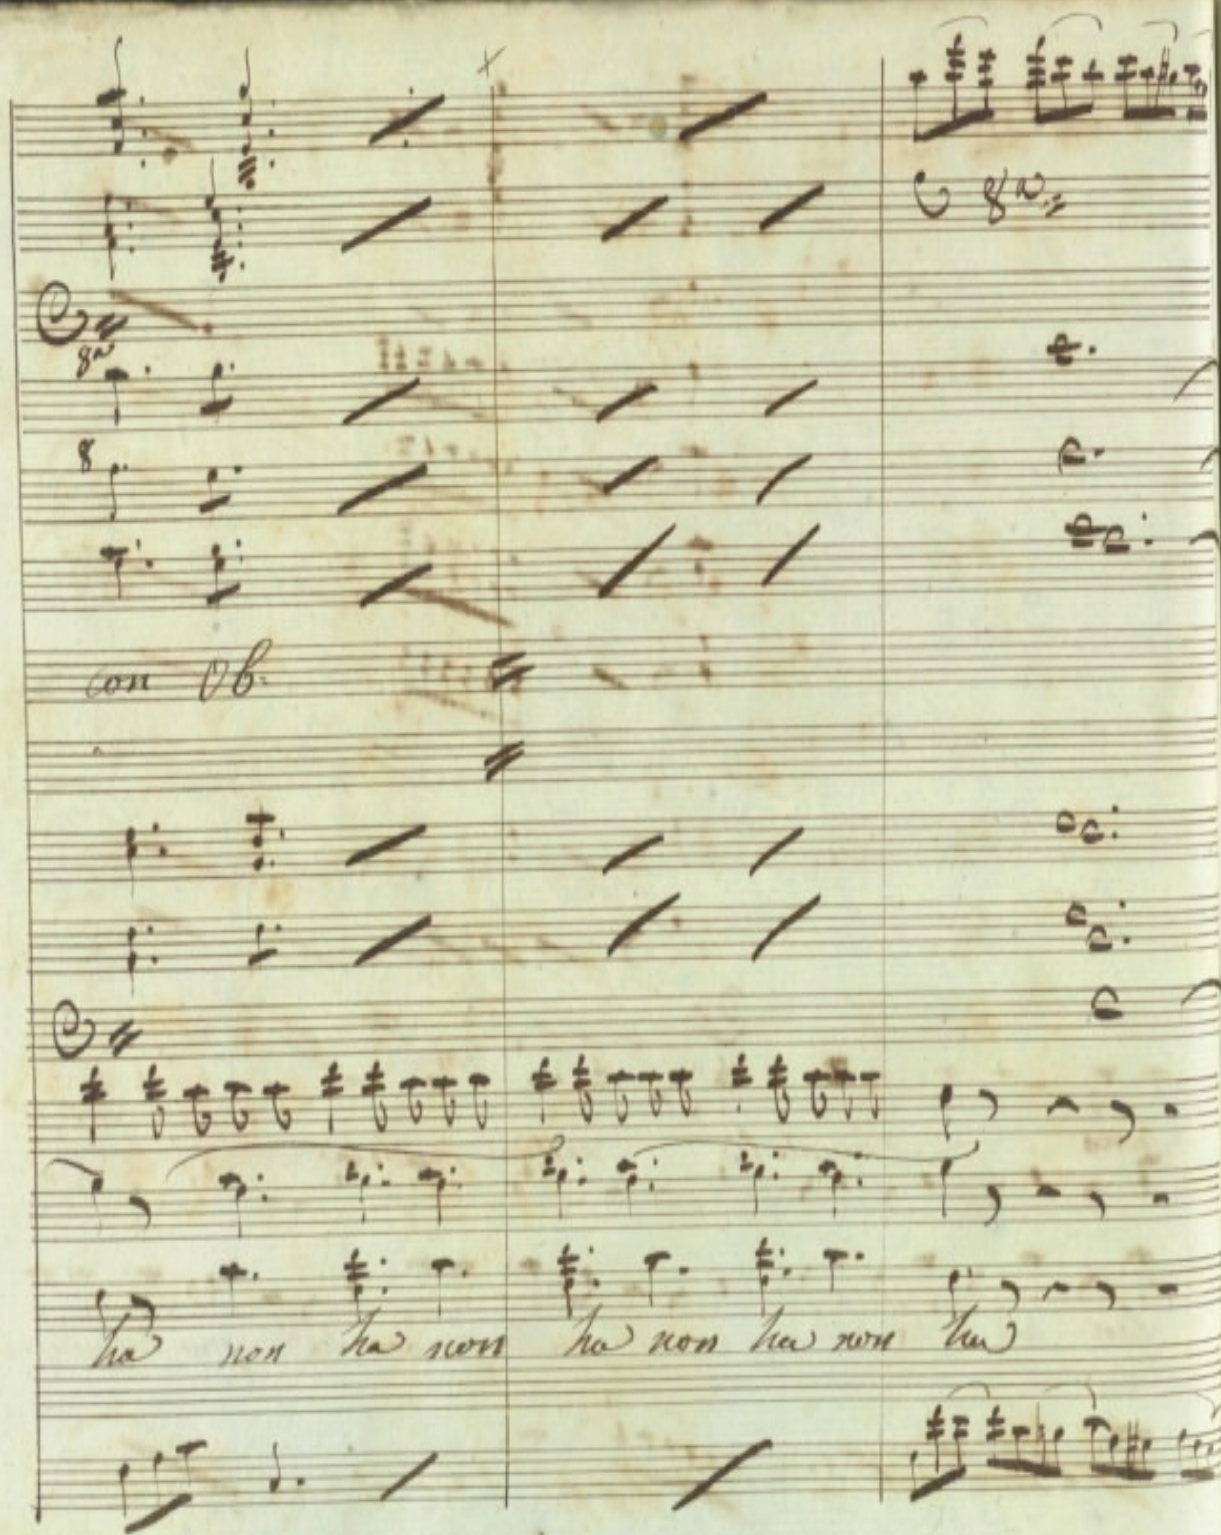 8va
8va
8
con Ob:
ha non ha non ha non ha non ha